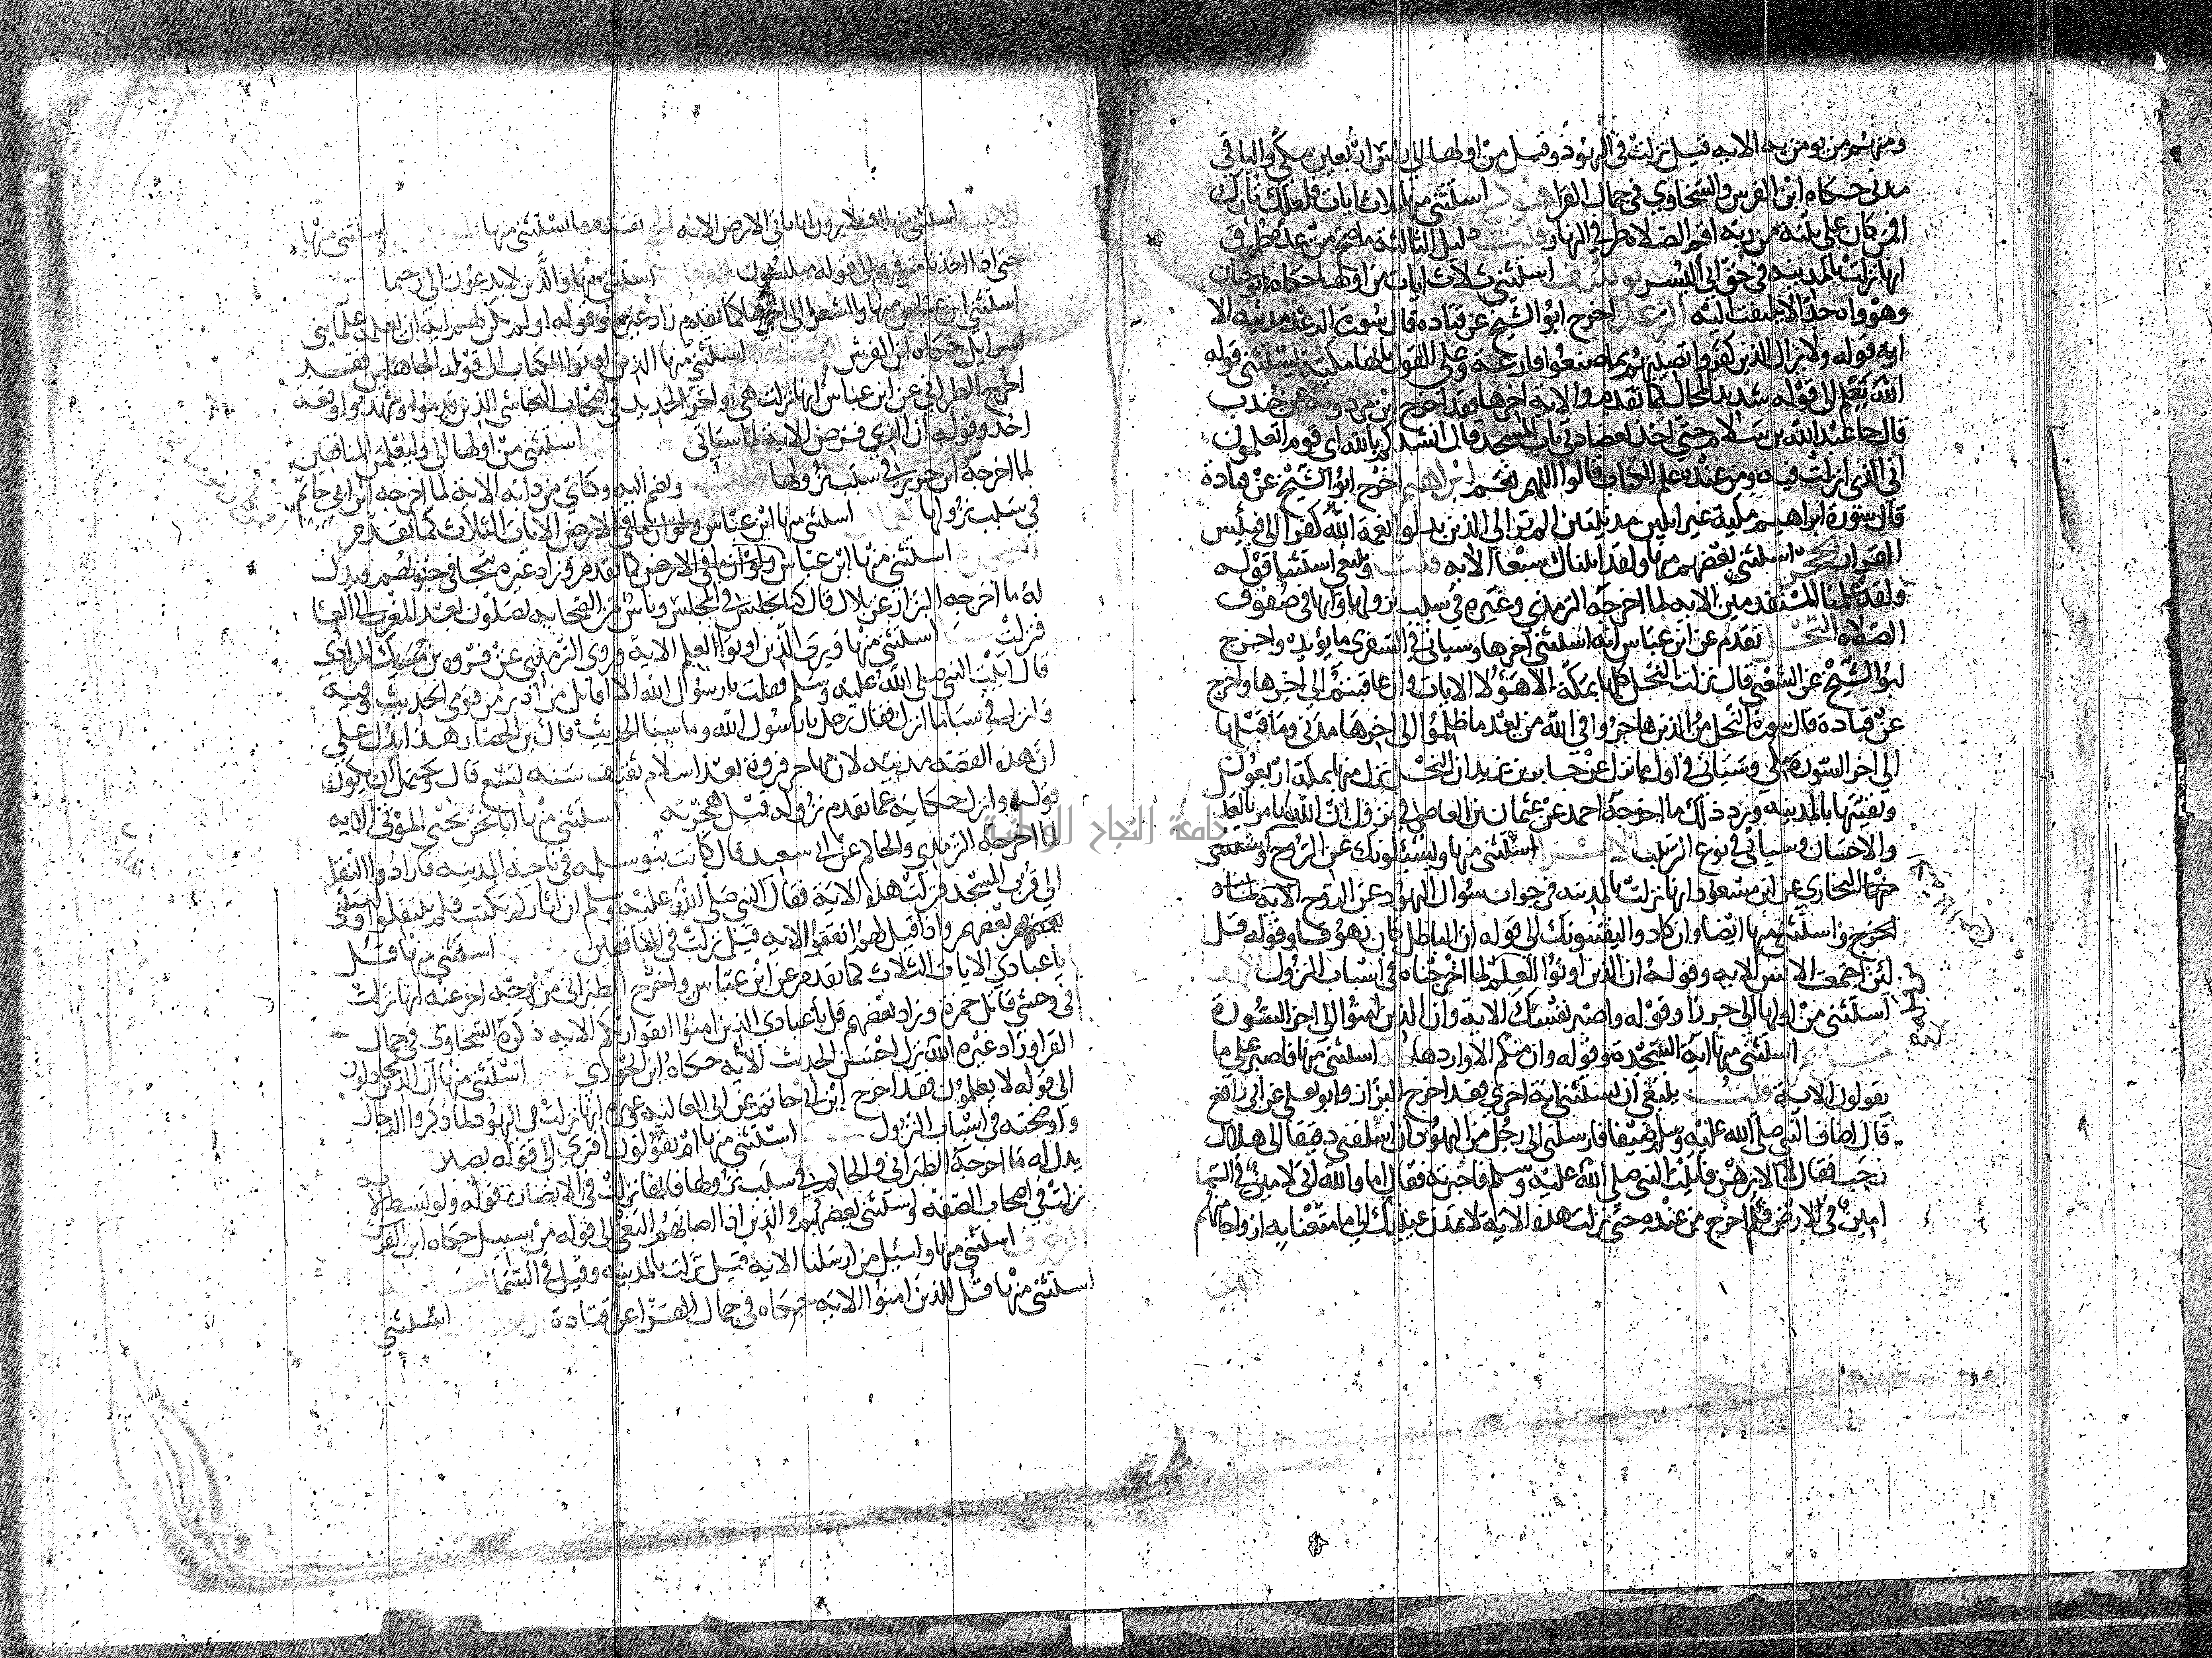 ومنهم من يومن به الايه قيل نزلت في اليهود وقيل من اولها الى راس اربعين مكي والباقي
مدني حكاه ابن الفرس والسخاوي في جمال القرا هود استثني منها ثلاث ايات فلعلك تارك
افمن كان على بينه من ربه اقم الصلاه طرفي النهار قلت دليل الثالثه ما صح من عدة طرق
انها نزلت بالمدينه في حق ابي اليسر يوسف استثني ثلاث ايات من اولها حكاه ابو حيان
وهو واه جدا لا يلتفت اليه الرعد اخرج ابو الشيخ عن قتاده قال سورة الرعد مدنيه الا
ايه قوله ولا يزال الذين كفروا تصيبهم بما صنعوا قارعة وعلى القول بانها مكية يستثنى قوله
الله يعلم الى قوله شديد المحال كما تقدم والايه اخرها فقد اخرج ابن مردويه عن جندب
قال جا عبد الله بن سلام حتى اخذ بعضادتي باب المسجد قال انشدكم بالله اي قوم اتعلمون
اني الذي انزلت فيه ومن عنده علم الكتاب قالوا اللهم نعم ابراهيم اخرج ابو الشيخ عن قتادة
قال سورة ابراهيم مكية غير ايتين مدنيتين الم تر الى الذين بدلوا نعمة الله كفرا الى فبئس
القرار الحجر استثنى بعضهم منها ولقد اتيناك سبعا الايه قلت وينبغي استثنا قوله
ولقد علمنا المستقدمين الايه لما اخرجه الترمذي وغيره في سبب نزولها وانها في صفوف
الصلاه النحل تقدم عن ابن عباس انه استثنى اخرها وسياتي في السفري ما يؤيده واخرج
ابو الشيخ عن الشعبي قال نزلت النحل كلها بمكة الا هؤلا الايات وان عاقبتم الى اخرها واخرج
عن قتادة قال سورة النحل من الذين هاجروا في الله من بعد ما ظلموا الى اخرها مدني وما قبلها
الى اخر السورة مكي وسياتي في اول ما نزل عن جابر بن زيد ان النحل نزل منها بمكة اربعون
وبقيتها بالمدينه ويرد ذلك ما اخرجه احمد عن عثمان بن العاص في نزول ان الله يامر بالعدل
والاحسان وسياتي في نوع الترتيب الاسرا استثني منها ويسئلونك عن الروح
البخاري عن ابن مسعود انها نزلت بالمدينه في جواب سؤال اليهود عن الروح الايه
اخرج واستثني منها ايضا وان كادوا ليفتنونك الى قوله ان الباطل كان زهوقا وقوله قل
لئن اجتمعت الانس الايه وقوله ان الذين اوتوا العلم لما اخرجناه في اسباب النزول
استثني من اولها الى جرزا وقوله واصبر نفسك الاية وان الذين امنوا الى اخر السورة
استثني منها اية السجدة وقوله وان منكم الا واردها استثني منها فاصبر على ما
يقولون الايه قلت ينبغي ان يستثنى ايه اخرى فقد اخرج البزار وابو يعلى عن ابي رافع
قال اضاف النبي صلى الله عليه وسلم ضيفا فارسلني الى رجل من اليهود ان اسلفني دقيقا الى هلال
رجب فقال لا الا برهن فاتيت النبي صلى الله عليه وسلم فاخبرته فقال اما والله اني لامين في السما
امين في الارض فلم اخرج من عنده حتى نزلت هذه الاية لا تمدن عينيك الى ما متعنا به ازواجا منهم
استثني منها افلا يرون انا ناتي الارض الايه تقدم ما يستثني منها استثني منها
حتى اذا اخذنا مترفيهم الى قوله مبلسون استثني منها والذين لا يدعون الى رحيما
استثنى ابن عباس منها والشعرا الى اخرها كما تقدم زاد غيره وقوله اولم يكن لهم اية ان يعلمه علما بني
اسرايل حكاه ابن الفرس استثني منها الذين اتيناهم الكتاب الى قوله الجاهلين فقد
اخرج الطبراني عن ابن عباس انها نزلت هي واخر الحديد في اصحاب النجاشي الذين قدموا وشهدوا وقعه
احد وقوله ان الذي فرض الايه لما سياتي استثني من اولها الى وليعلمن المنافقين
لما اخرجه ابن جرير في سبب نزولها ويضم اليه وكاي من دابه الايه لما اخرجه ابن ابي حاتم
في سبب نزولها لقمان استثنى منها ابن عباس ولو ان ما في الارض الايات الثلاث كما تقدم
السجدة استثنى منها ابن عباس كما تقدم وزاد غيره تتجافى جنوبهم ويدل
له ما اخرجه البزار عن بلال قال كنا نجلس في المجلس وناس من الصحابه يصلون بعد المغرب الى العشا
فنزلت سبا استثني منها ويرى الذين اوتوا العلم الاية وروى الترمذي عن فروه بن مسيك المرادي
قال اتيت النبي صلى الله عليه وسلم فقلت يا رسول الله الا اقاتل من ادبر من قومي الحديث وفيه
وانزل في سبا ما انزل فقال رجل يا رسول الله وما سبا الحديث قال ابن الحصار هذا يدل على
ان هذه القصة مدنيه لان مهاجر فروة بعد اسلام ثقيف سنه تسع قال ويحتمل ان يكون
قوله وانزل حكاية عما تقدم نزوله قبل هجرته استثني منها انا نحن نحيي الموتى الايه
لما اخرجه الترمذي والحاكم عن ابي سعيد قال كانت بنو سلمه في ناحيه المدينه فارادوا النقله
الى قرب المسجد فنزلت هذه الاية فقال النبي صلى الله عليه وسلم ان اثاركم تكتب فلم ينتقلوا واستثنى
بعضهم واذا قيل لهم انفقوا الايه قيل نزلت في المنافقين استثني منها قل
يا عبادي الايات الثلاث كما تقدم عن ابن عباس واخرج الطبراني من وجه اخر عنه انها نزلت
في وحشي قاتل حمزة وزاد بعضهم قل يا عبادي الذين امنوا اتقوا ربكم الايه ذكره السخاوي في جمال
القرا وزاد غيره الله نزل احسن الحديث الايه حكاه ابن الجوزي استثني منها ان الذين يجادلون
الى قوله لا يعلمون فقد اخرج ابن ابي حاتم عن ابي العالية وغيره انها نزلت في اليهود لما ذكروا الدجال
واوضحته في اسباب النزول استثني منها ام يقولون افترى الى قوله بصير
يدل له ما اخرجه الطبراني والحاكم في سبب نزولها فانها نزلت في الانصار وقوله ولو بسط الايه
نزلت في اصحاب الصفه واستثنى بعضهم والذين اذا اصابهم البغي الى قوله من سبيل حكاه ابن الفرس
الزخرف استثني منها واسئل من ارسلنا الاية قيل نزلت بالمدينه وقيل في السما
استثني منها قل للذين امنوا الايه حكاه في جمال القرا عن قتادة استثني
جامعة النجاح الوطنية